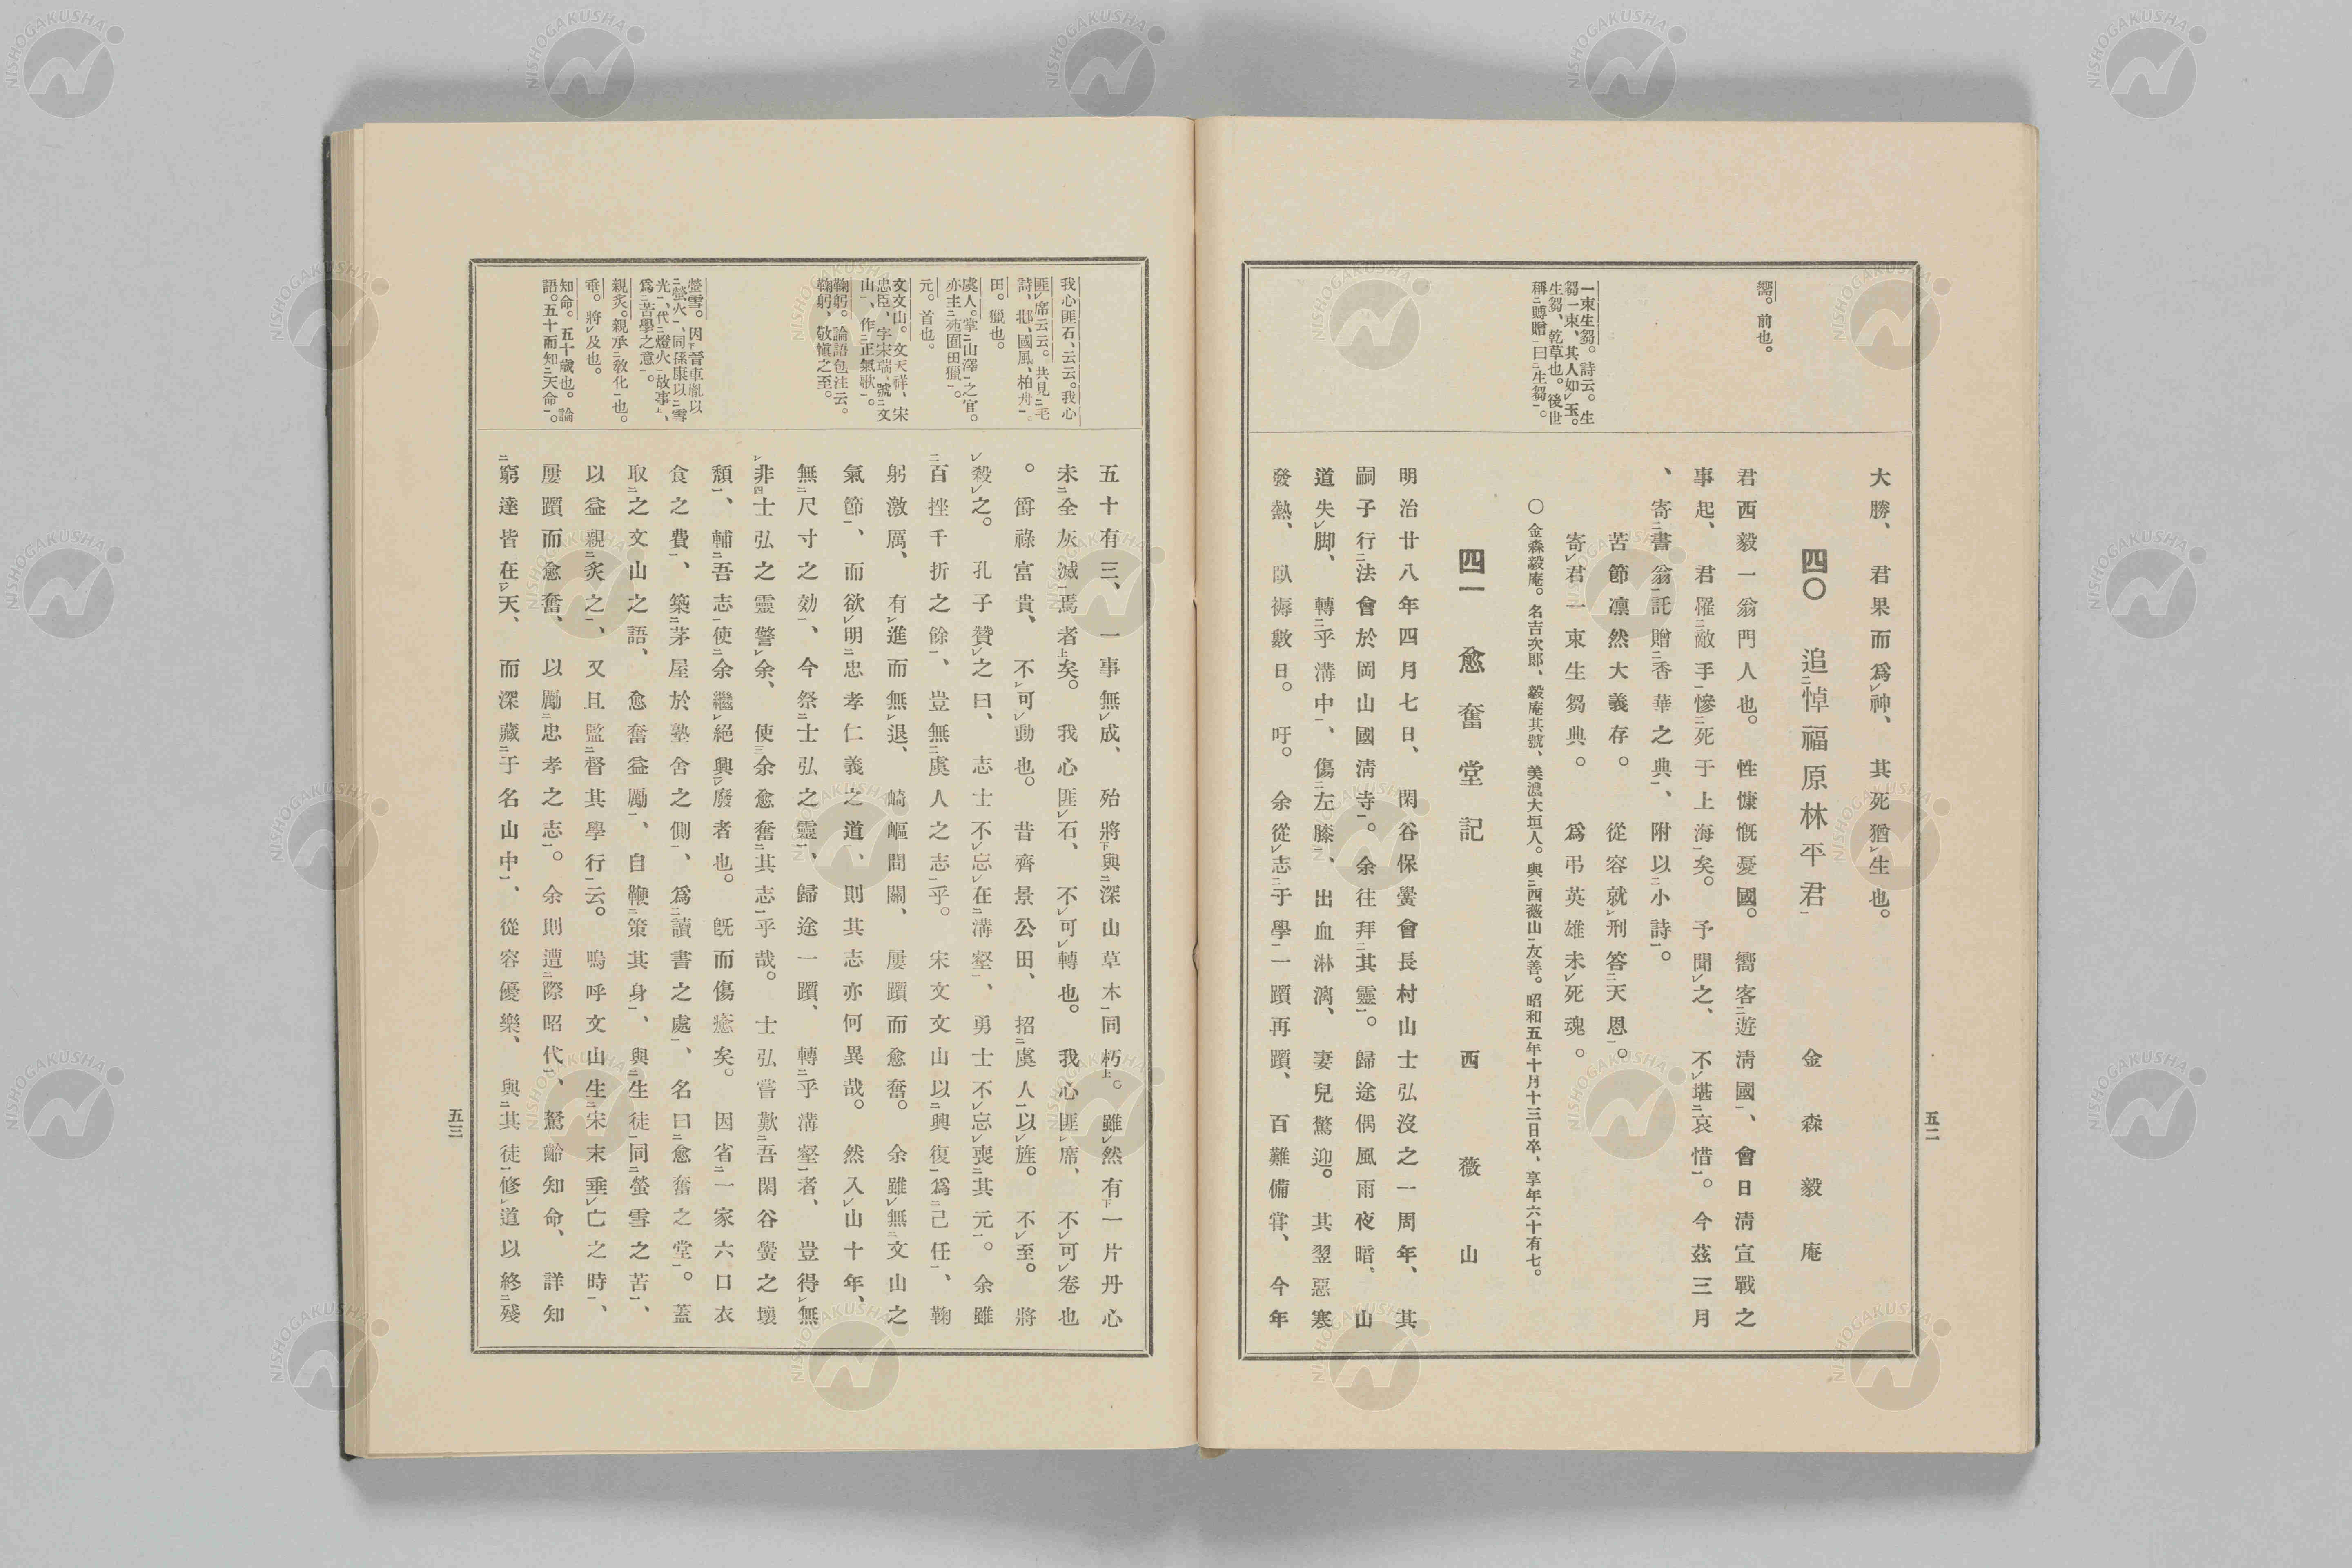 嚮。前也。
一束生芻。詩云。生
芻一束、其人如玉。
生芻、乾草也。後世
稱賻贈曰生芻。
大勝、君果而爲神、其死猶生也。
四〇 追悼福原林平君 金森毅庵
君西毅一翁門人也。性慷慨憂國。嚮客遊淸國、會日淸宣戰之
事起、君罹敵手慘死于上海矣。予聞之、不堪哀惜。今茲三月
、寄書翁託贈香華之典、附以小詩。
苦節凛然大義存。從容就刑答天恩。
寄君一束生芻典。爲弔英雄未死魂。
〇金森毅庵。名吉次郞、毅庵其號、美濃大垣人。與西薇山友善。昭和五年十月十三日卒、享年六十有七。
四一 愈奮堂記 西薇山
明治廿八年四月七日、閑谷保黌會長村山士弘沒之一周年、其
嗣子行法會於岡山國淸寺。余往拜其靈。歸途偶風雨夜暗、山
道失脚、轉乎溝中、傷左膝、出血淋漓、妻兒驚迎。其翌惡寒
發熱、臥褥數日。吁。余從志于學一躓再躓、百難備甞、今年
五二
我心匪石、云云。我心
匪席云云。共見毛
詩、邶、國風、柏舟。
田。獵也。
虞人。掌山澤之官。
亦主苑囿田獵。
元。首也。
文文山。文天祥、宋
忠臣、字宋瑞、號文
山、作正氣歌。
鞠躬。論語包注云。
鞠躬、敬愼之至。
螢雪。因晉車胤以
螢火、同孫康以雪
光、代燈火故事、
爲苦學之意。
親炙。親承敎化也。
垂。將及也。
知命。五十歲也。論
語。五十而知天命。
五十有三、一事無成、殆將與深山草木同朽。雖然有一片丹心
未全灰滅焉者矣。我心匪石、不可轉也。我心匪席、不可卷也
。爵祿富貴、不可動也。昔齊景公田、招虞人以旌。不至。將
殺之。孔子贊之曰、志士不忘在溝壑、勇士不忘喪其元。余雖
百挫千折之餘、豈無虞人之志乎。宋文文山以興復爲己任、鞠
躬激厲、有進而無退、崎嶇間關、屢躓而愈奮。余雖無文山之
氣節、而欲明忠孝仁義之道、則其志亦何異哉。然入山十年、
無尺寸之効、今祭士弘之靈、歸途一躓、轉乎溝壑者、豈得無
非士弘之靈警余、使余愈奮其志乎哉。士弘嘗歎吾閑谷黌之壞
頽、輔吾志使余繼絕興廢者也。旣而傷癒矣。因省一家六口衣
食之費、築茅屋於塾舍之側、爲讀書之處、名曰愈奮之堂。蓋
取之文山之語、愈奮益勵、自鞭策其身、與生徒同螢雪之苦、
以益親炙之、又且監督其學行云。嗚呼文山生宋末垂亡之時、
屢躓而愈奮、以勵忠孝之志。余則遭際昭代、駑齡知命、詳知
窮達皆在天、而深藏于名山中、從容優樂、與其徒修道以終殘
五三